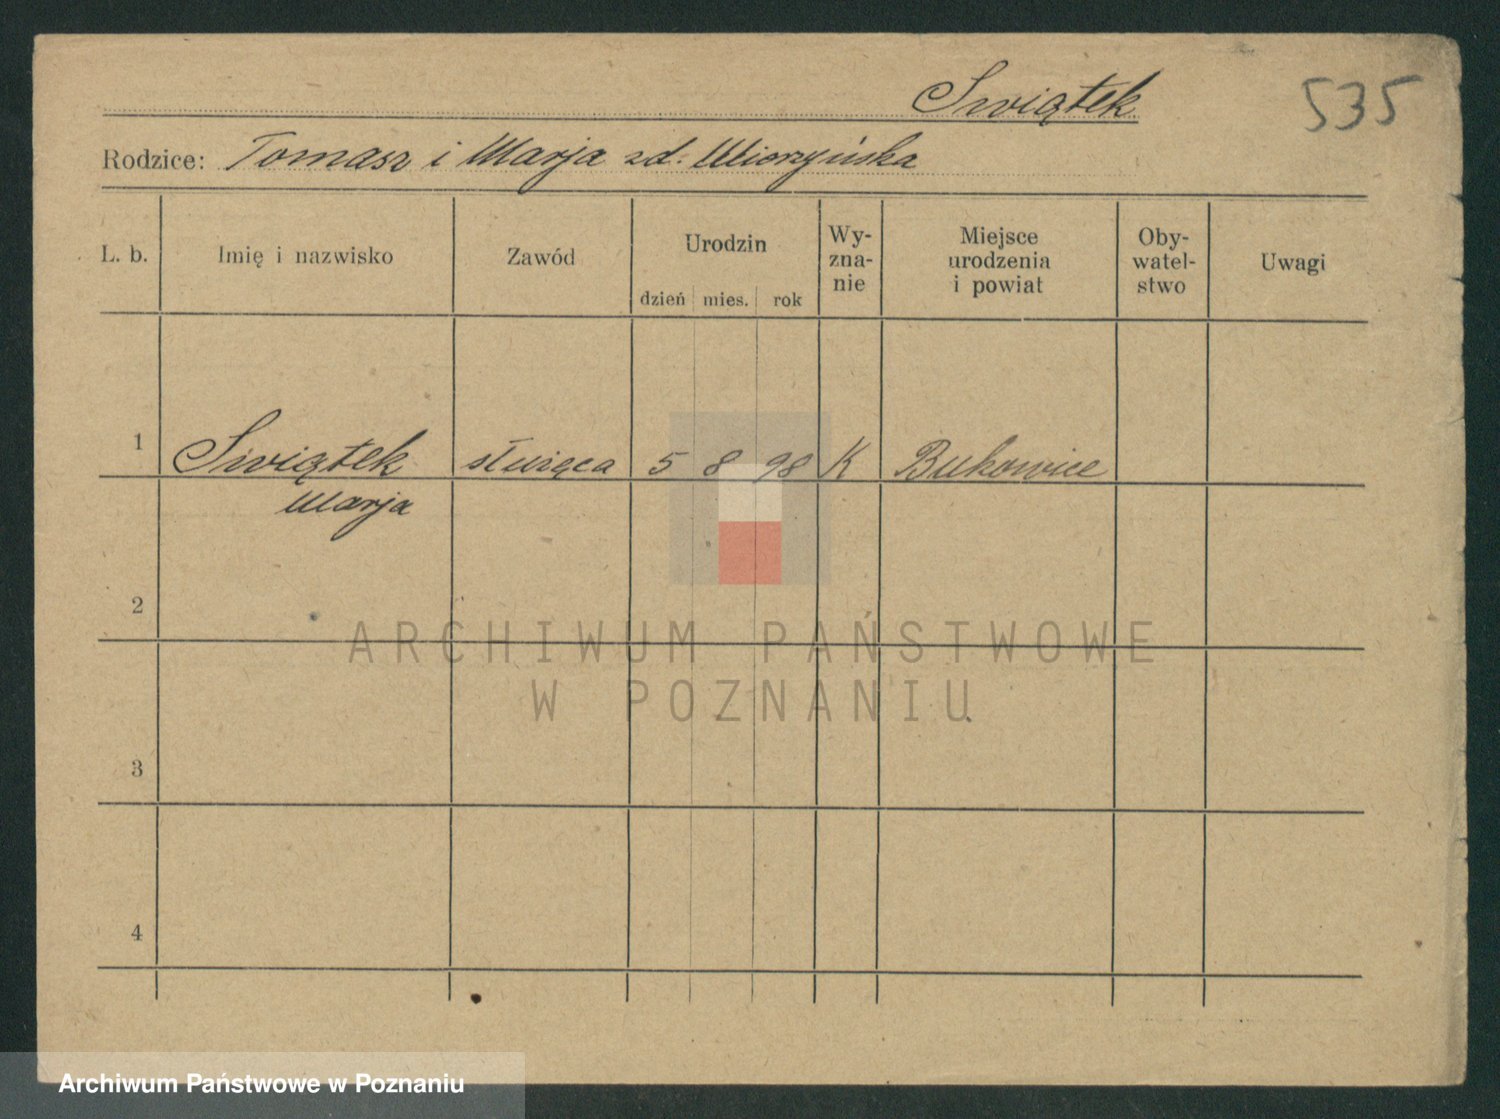 Swiątek
535
Rodzice: Tomasz i Marja zd.
L. b.
Imię i nazwisko
Zawód
Urodzin
dzień mies. rok
Wy-
zna-
nie
Miejsce
urodzenia
i powiat
Oby-
watel-
stwo
Uwagi
1 Swiątek służąca 5 8 98 K Bukowice
Marja
2
ARCHIWUM PAŃSTWOWE
W POZNANIU
3
4
Archiwum Państwowe w Poznaniu